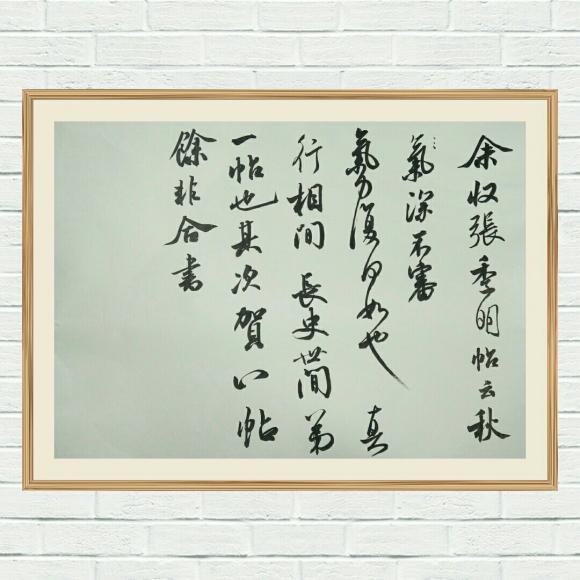 余收張季明帖云秋
氣深不審
氣力復何如也真
行相間長史世間第
一帖也其次賀八帖
餘非合書